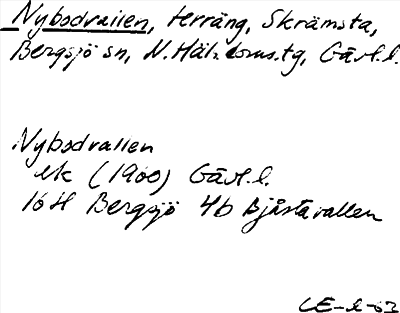 Nybodvallen, terräng, Skrämsta,
Bergsjö sn, N. Häls. tg, Gävl. l.
Nybodvallen
ek (1960) Gävl. l.
16H Bergsjö 4b Bjåstavallen
CE-l-63